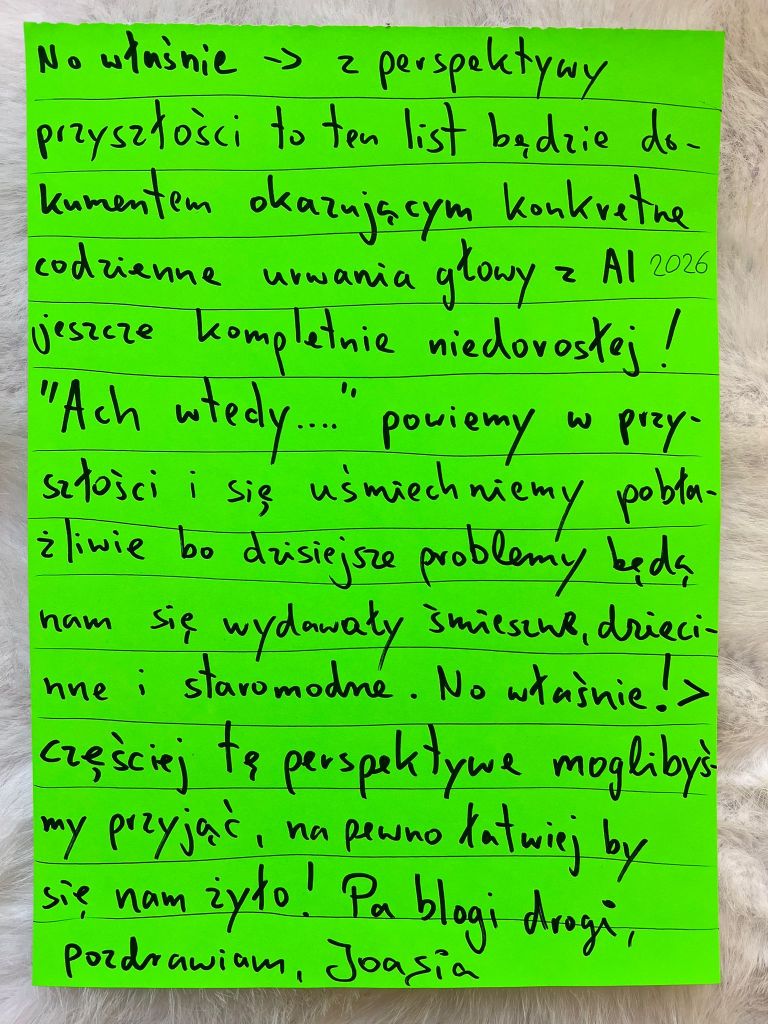 No właśnie -> z perspektywy
przyszłości to ten list będzie do-
kumentem okazującym konkretne
codzienne urwania głowy z AI 2026
jeszcze kompletnie niedorosłej!
"Ach wtedy...." powiemy w przy-
szłości i się uśmiechniemy pobła-
żliwie bo dzisiejsze problemy będą
nam się wydawały śmieszne, dzieci-
nne i staromodne. No właśnie! >
częściej tę perspektywe moglibyś-
my przyjąć, na pewno łatwiej by
się nam żyło! Pa blogi drogi,
pozdrawiam, Joasia